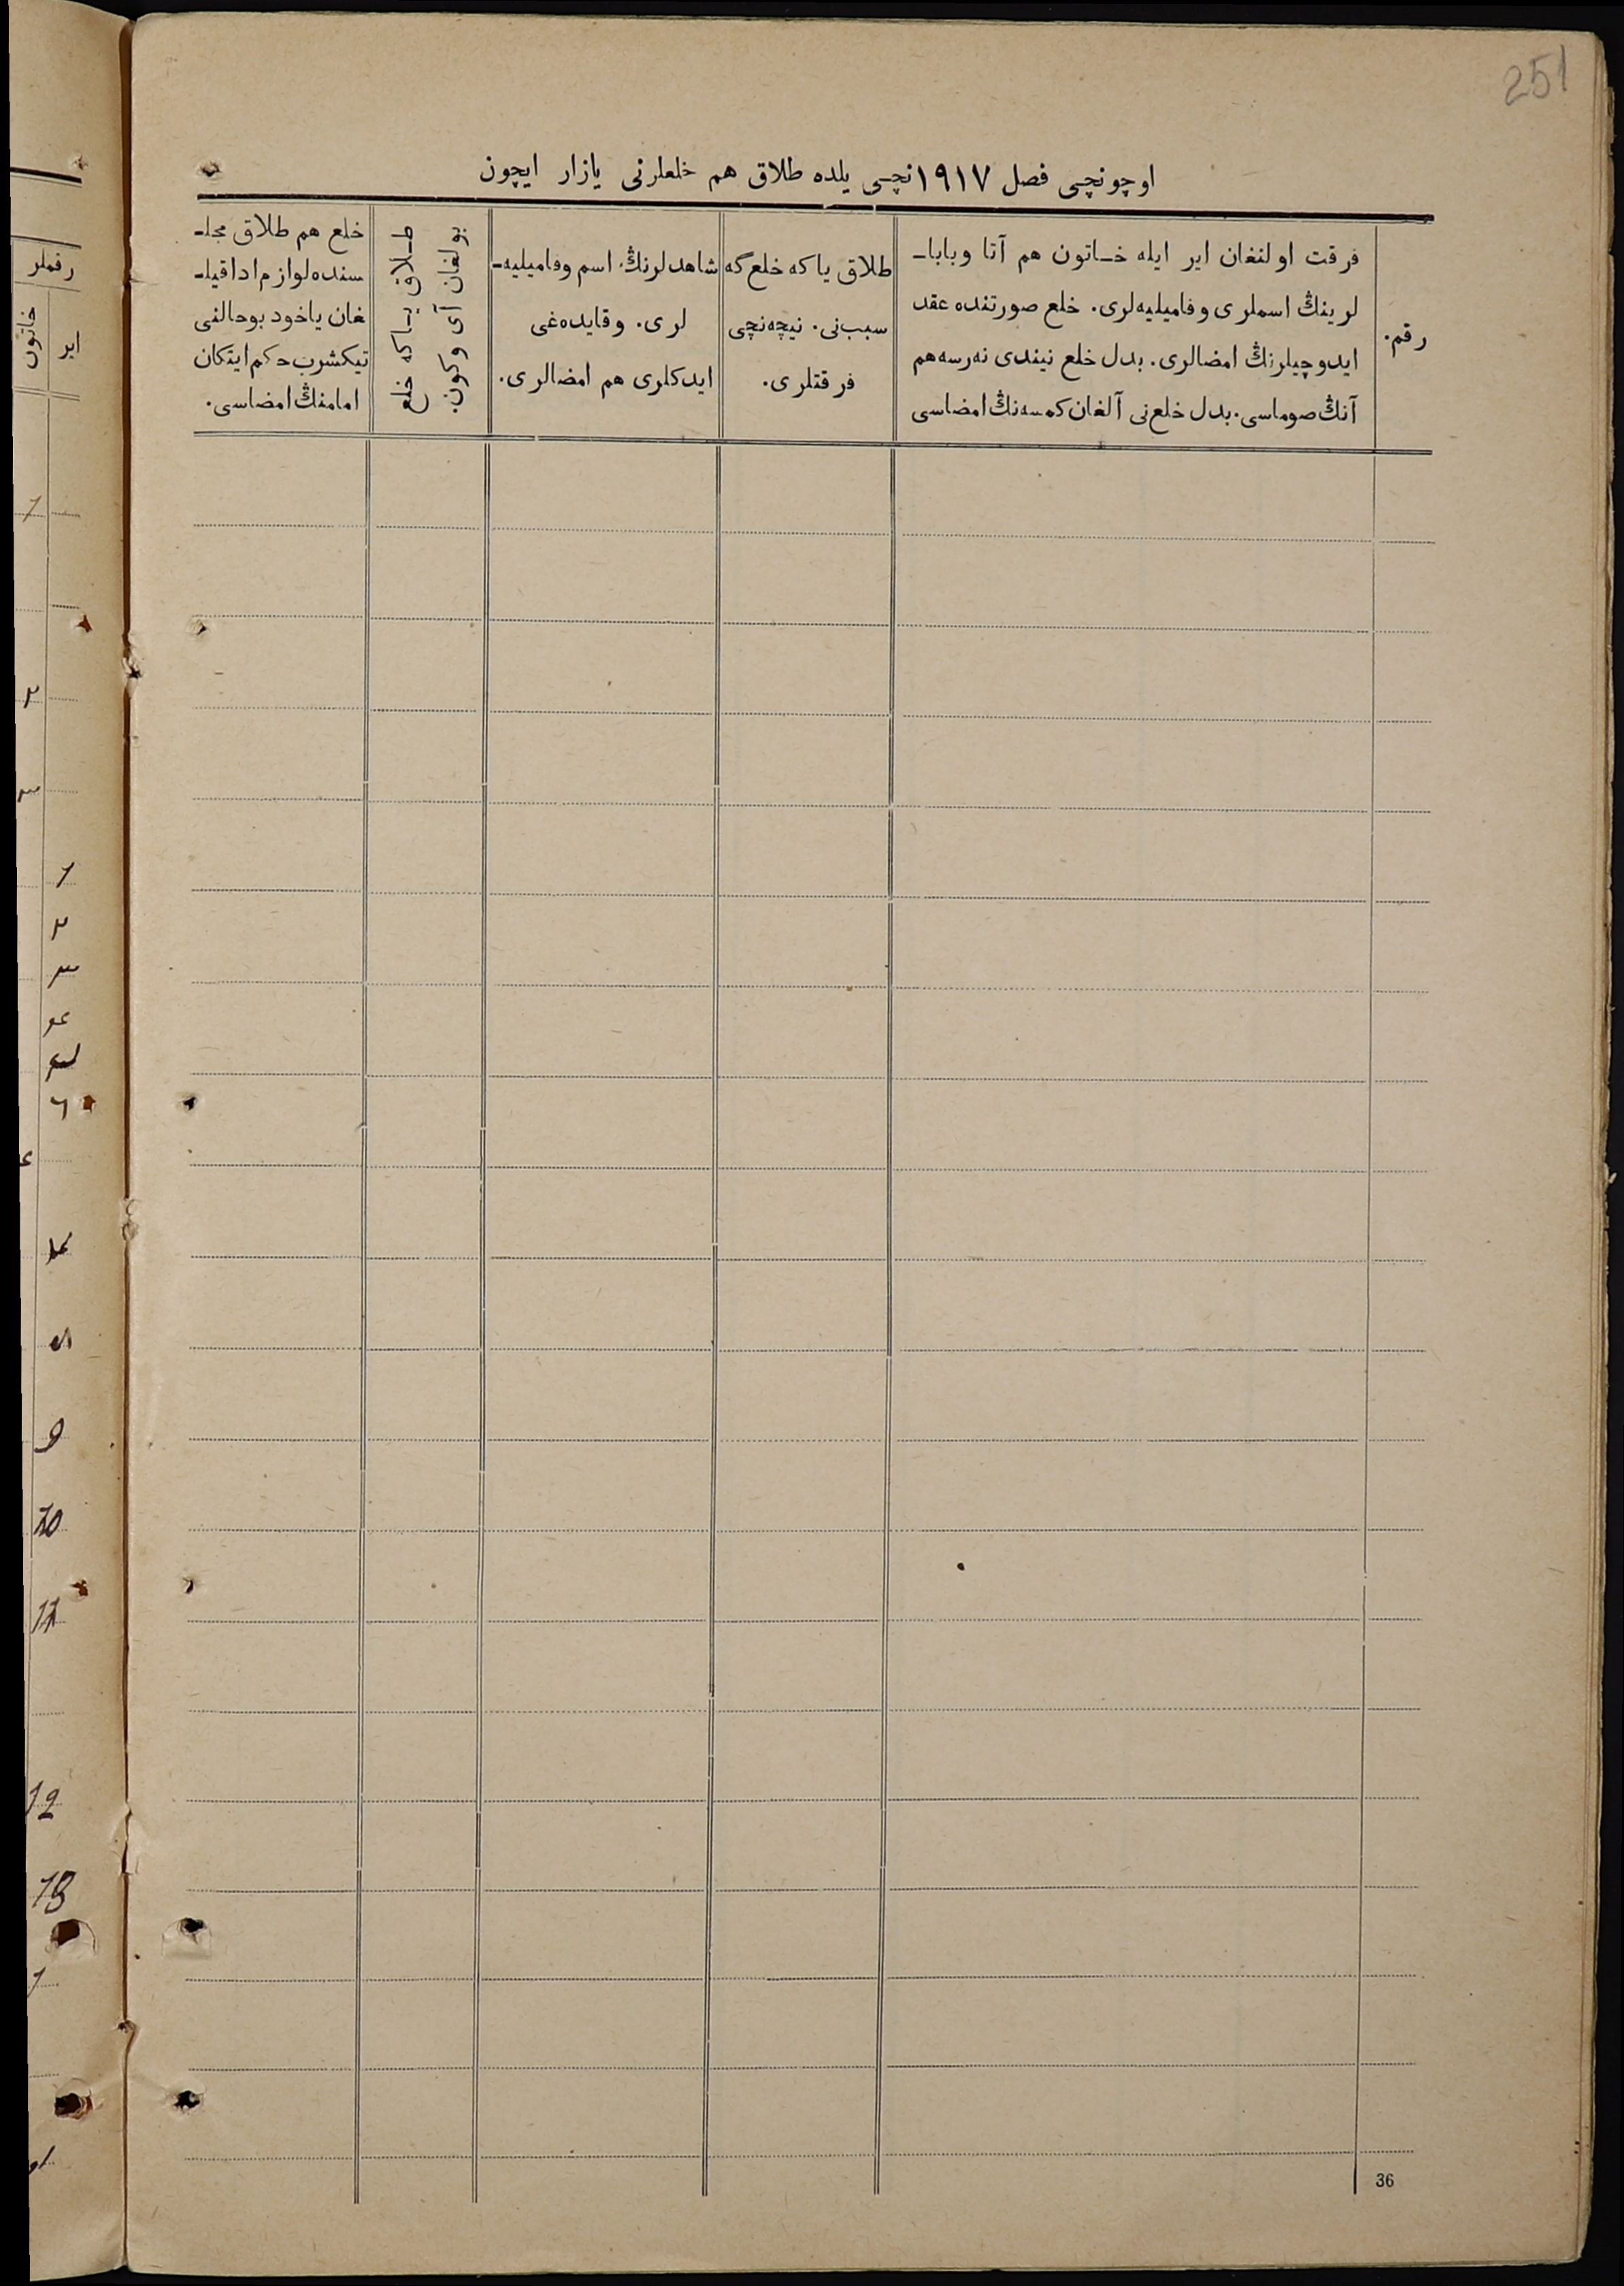 251
اوچونچی فصل ۱۹۱۷نچی یلده طلاق هم خلعلرنی یازار ایچون
رقم.
فرقت اولنغان ایر ایله خاتون هم آتا وبابا-
لرینڭ اسملری وفامیلیه‌لری. خلع صورتنده عقد
ایدوچیلرنڭ امضالری. بدل خلع نیندی نه‌رسه هم
آنڭ صوماسی. بدل خلع‌نی آلغان کمسه‌نڭ امضاسی
طلاق یا که خلع گه
سبب‌نی. نیچه‌نچی
فرقتلری.
شاهدلرنڭ اسم وفامیلیه-
لری. وقایده‌غی
ایدکلری هم امضالری.
طلاق یا که خلع
بولغان آی وکون.
خلع هم طلاق مجلـ
سنده لوازم ادا قیلـ
غان یاخود بوحالنی
تیکشرب حکم ایتکان
امامنڭ امضاسی.
رقملر
ایر
خاتون
۱
۲
۳
۱
۲
۳
۶
9
10
11
12
13
1
36